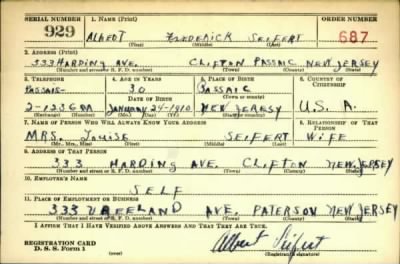 SERIAL NUMBER 1. NAME (Print) ORDER NUMBER
929 ALBEOT FREDERICK SEIFERT 687
(First) (Middle) (Last)
2. ADDRESS (Print)
333 HARDING AVE. CLIFTON PASSAIC NEW JERSEY
(Number and street or R. F. D. number) (Town) (County) (State)
3. TELEPHONE 4. AGE IN YEARS 5. PLACE OF BIRTH 6. COUNTRY OF CITIZENSHIP
PASSAIC 30 PASSAIC
DATE OF BIRTH (Town or county)
2-1236 JANUARY 24-1910 NEW JERESY U.S.A.
(Exchange) (Number) (Mo.) (Day) (Yr.) (State or country)
7. NAME OF PERSON WHO WILL ALWAYS KNOW YOUR ADDRESS 8. RELATIONSHIP OF THAT PERSON
MRS. LOUISE SEIFERT WIFE
(Mr., Mrs., Miss) (First) (Middle) (Last)
9. ADDRESS OF THAT PERSON
333 HARDING AVE. CLIFTON NEW JERSEY
(Number and street or R. F. D. number) (Town) (County) (State)
10. EMPLOYER'S NAME
SELF
11. PLACE OF EMPLOYMENT OR BUSINESS
333 VREELAND AVE. PATERSON NEW JERSEY
(Number and street or R. F. D. number) (Town) (County) (State)
I AFFIRM THAT I HAVE VERIFIED ABOVE ANSWERS AND THAT THEY ARE TRUE.
REGISTRATION CARD
D. S. S. Form 1 Albert Seifert
(Registrant's signature)